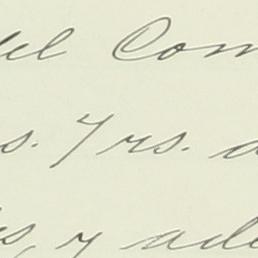 del Com
s. Yrs. a
s, y ade